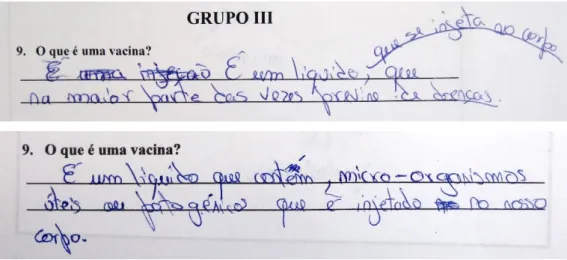 GRUPO III
9. O que é uma vacina?
É uma injeção É um líquido, que se injeta no corpo
que
na maior parte das vezes previne de doenças.
9. O que é uma vacina?
É um líquido que contém, micro-organismos
úteis ou patogénico que é injetado no nosso
corpo.